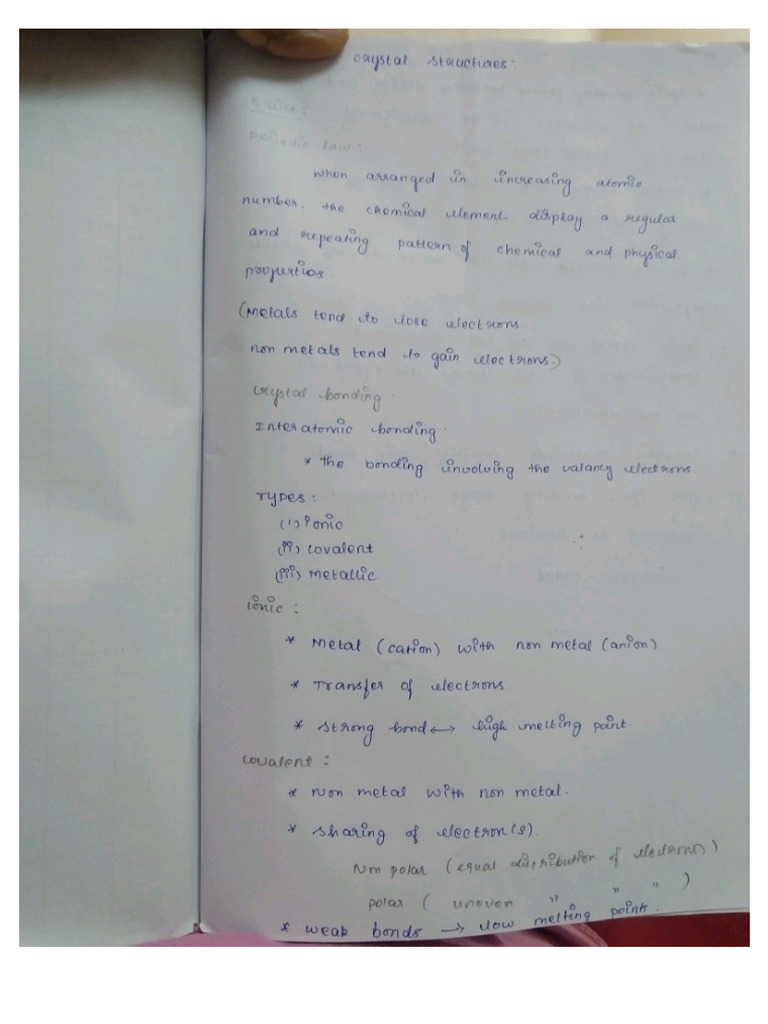 crystal structures:
Basics:
Periodic law:
when arranged in increasing atomic
number. the chemical element display a regular
and repeating pattern of chemical and physical
properties
(Metals tend to lose electrons
non metals tend to gain electrons.)
crystal bonding.
Interatomic bonding
* the bonding involving the valancy electrons
Types:
(i) ionic
(ii) covalent
(iii) metallic
ionic:
* Metal (cation) with non metal (anion)
* Transfer of electrons
* strong bond ↔ high melting point
covalent:
* Non metal with non metal.
* sharing of electron(s).
Non polar (equal distribution of electrons)
polar ( uneven " " " )
* weak bonds → low melting points.